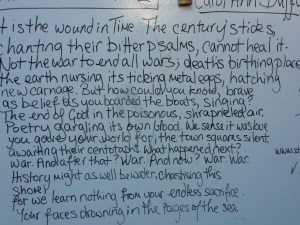 Carol Ann Duffy
It is the wound in Time. The century's tides,
chanting their bitter psalms, cannot heal it.
Not the war to end all wars; death's birthing place;
the earth nursing its ticking metal eggs, hatching
new carnage. But how could you know, brave
as belief as you boarded the boats, singing?
The end of God in the poisonous, shrapneled air.
Poetry gargling its own blood. We sense it was love
you gave your world for; the town squares silent,
awaiting their cenotaphs. What happened next?
War. And after that? War. And now? War. War.
History might as well be water, chastising this
shore;
for we learn nothing from your endless sacrifice.
Your faces drowning in the pages of the sea.